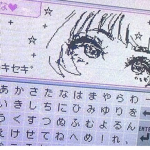 な♥
キセキ゛
あかさたなはまやらわ
いきしちにひみゆりを
うくすつぬふむよるん
えけせてねへめ れー
INTE